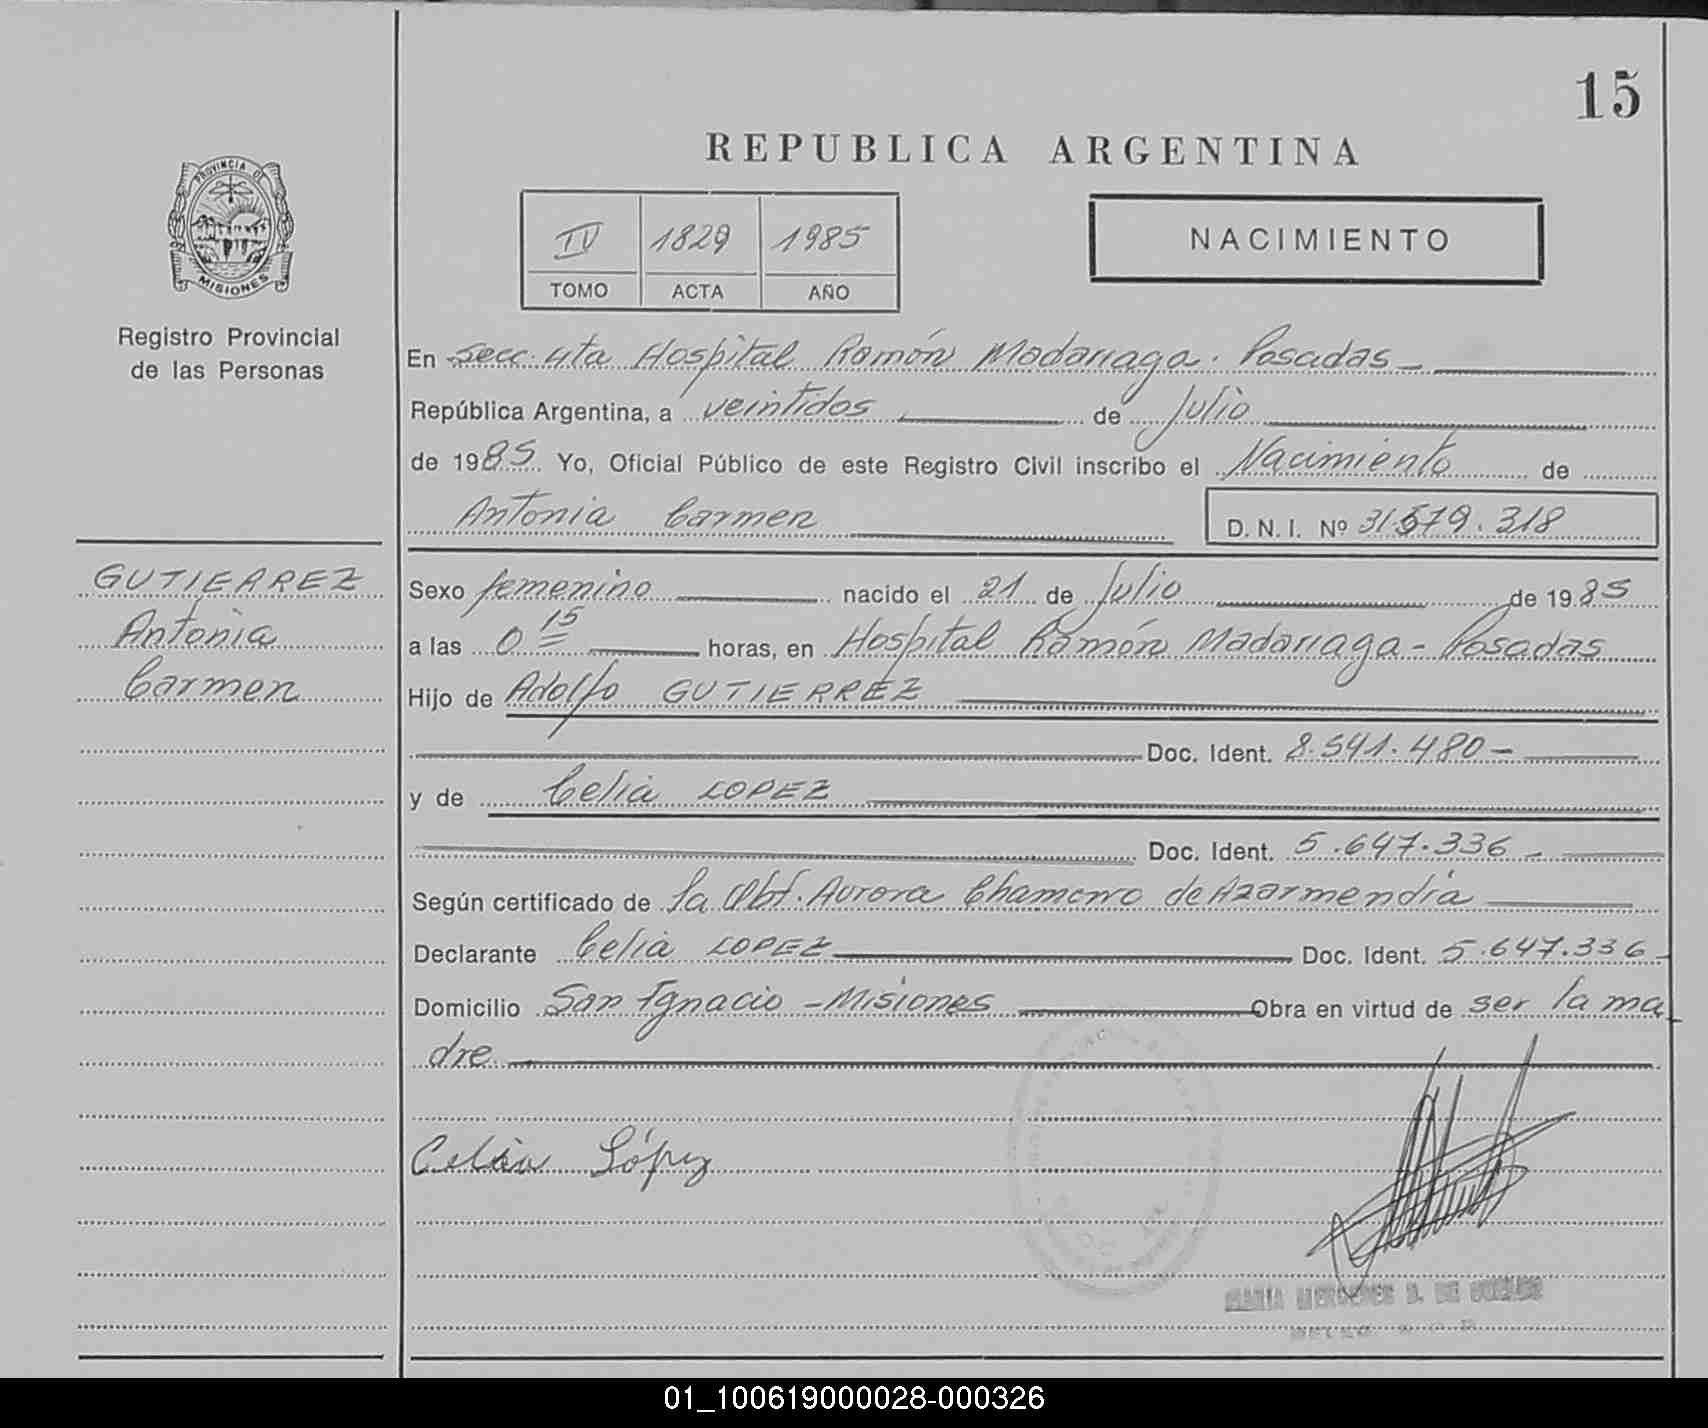 15
REPUBLICA ARGENTINA
PROVINCIA DE
MISIONES
Registro Provincial
de las Personas
IV 1829 1985
TOMO ACTA AÑO
NACIMIENTO
En Secc. 4ta Hospital Ramón Madariaga. Posadas
República Argentina, a veintidos de Julio
de 1985 Yo, Oficial Público de este Registro Civil inscribo el Nacimiento de
Antonia Carmen D.N.I. Nº 31.579.318
GUTIERREZ
Antonia
Carmen
Sexo femenino nacido el 21 de Julio de 1985
a las 0 15 horas, en Hospital Ramón Madariaga - Posadas
Hijo de Adolfo GUTIERREZ
Doc. Ident. 8.541.480 -
y de Celia LOPEZ
Doc. Ident. 5.647.336 -
Según certificado de la Obt. Aurora Chamorro de Azarmendia
Declarante Celia LOPEZ Doc. Ident. 5.647.336 -
Domicilio San Ignacio - Misiones Obra en virtud de ser la ma
dre
Celia López
MARIA MERCEDES D. DE
01_100619000028-000326